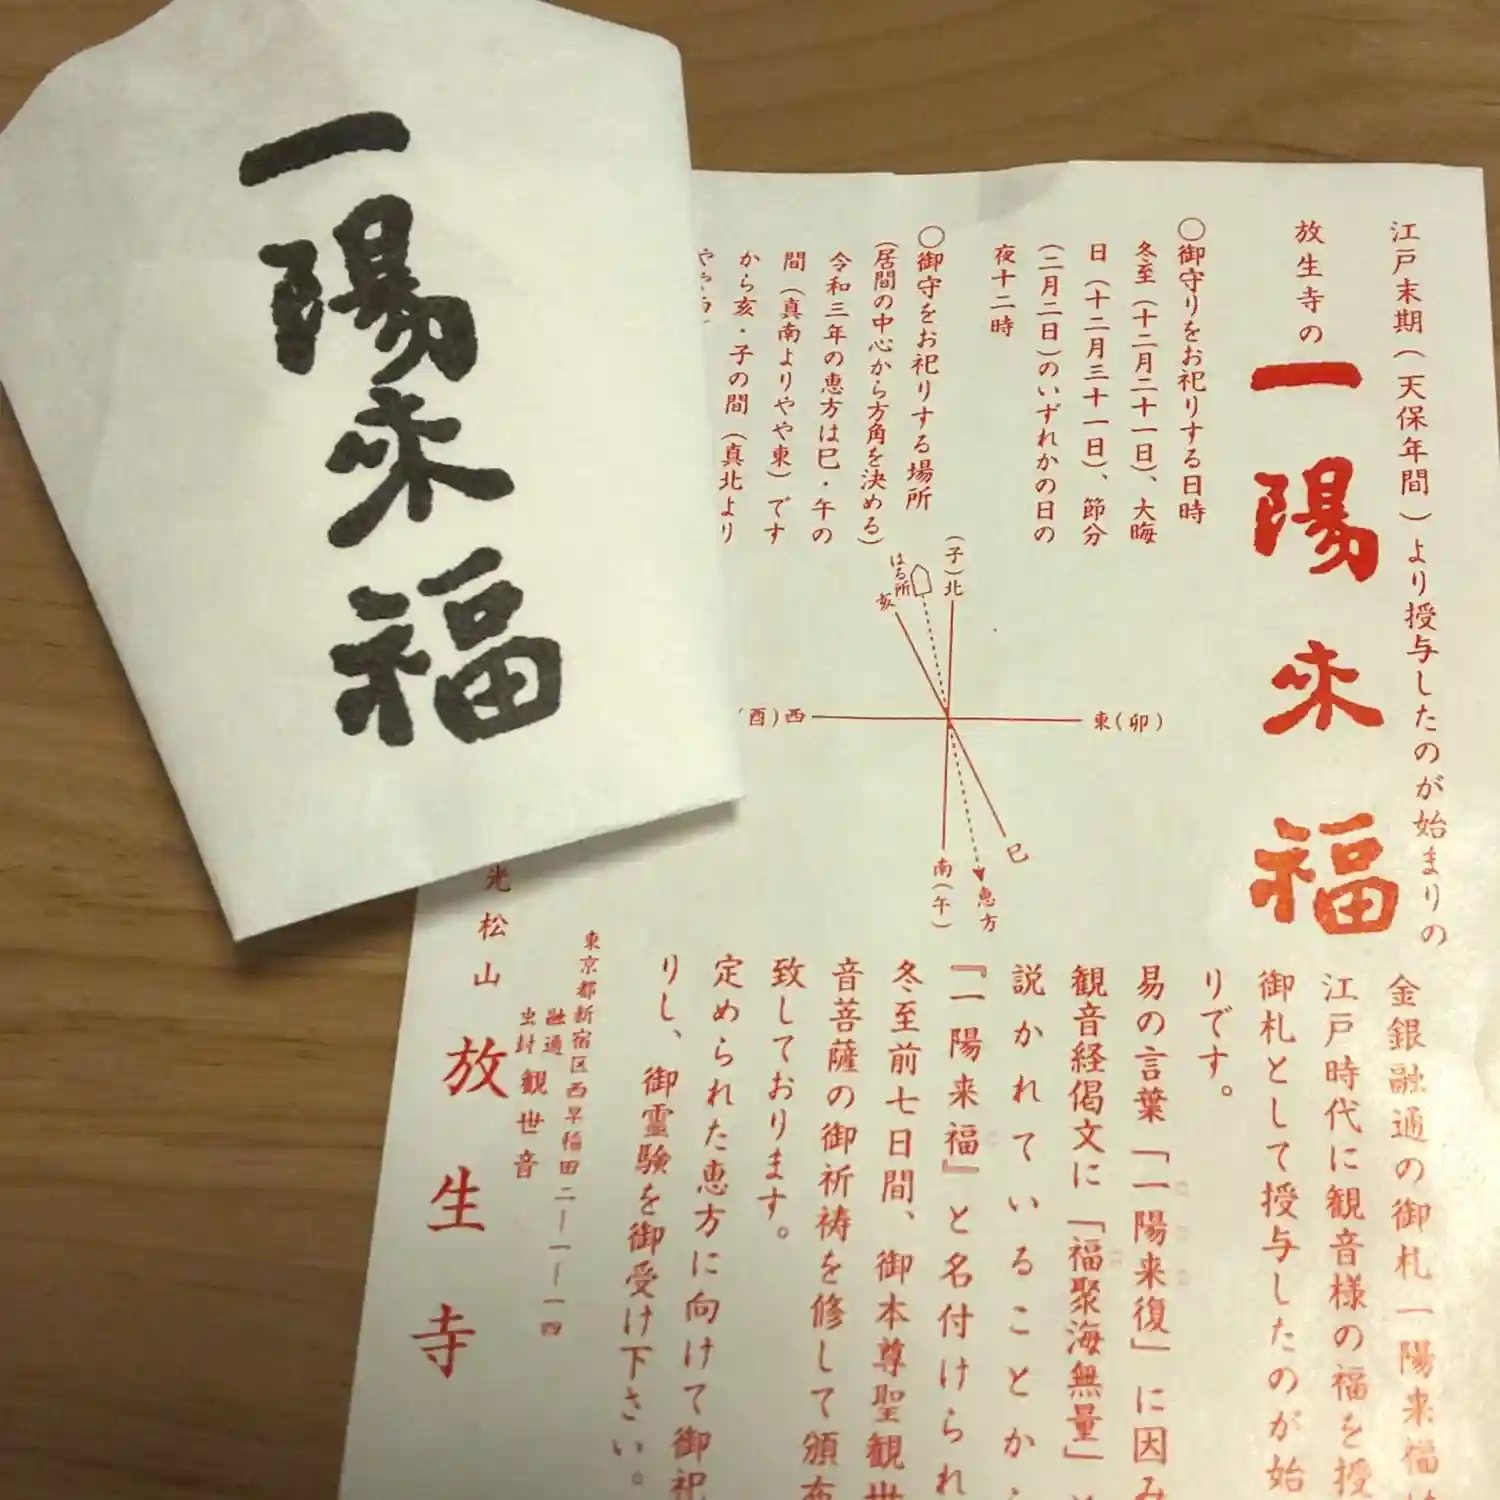 一陽来福
江戸末期（天保年間）より授与したのが始まりの
放生寺の
一陽来福
○御守りをお祀りする日時
冬至（十二月二十一日）、大晦
日（十二月三十一日）、節分
（二月二日）のいずれかの日の
夜十二時
○御守をお祀りする場所
（居間の中心から方角を決める）
令和三年の恵方は巳・午の
間（真南よりやや東）です
から亥・子の間（真北より
（子）北
はる所
亥
（酉）西
東（卯）
巳
南（午）
恵方
金銀融通の御札一陽来福
江戸時代に観音様の福を授
御札として授与したのが始
りです。
易の言葉「一陽来復」に因み
観音経偈文に「福聚海無量」
説かれていることから
『一陽来福』と名付けられ
冬至前七日間、御本尊聖観世
音菩薩の御祈祷を修して頒布
致しております。
定められた恵方に向けて御祀
りし、御霊験を御受け下さい。
東京都新宿区西早稲田二ー一ー一四
融通
虫封
観世音
光松山
放生寺